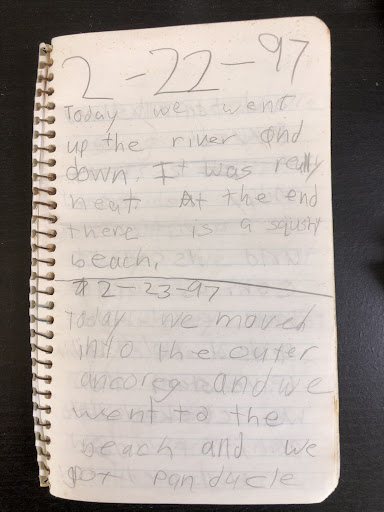 2-22-97
Today we went
up the river and
down. It was really
neat. At the end
there is a squshy
beach.
2-23-97
Today we moved
into the outer
ancoreg and we
went to the
beach and we
got